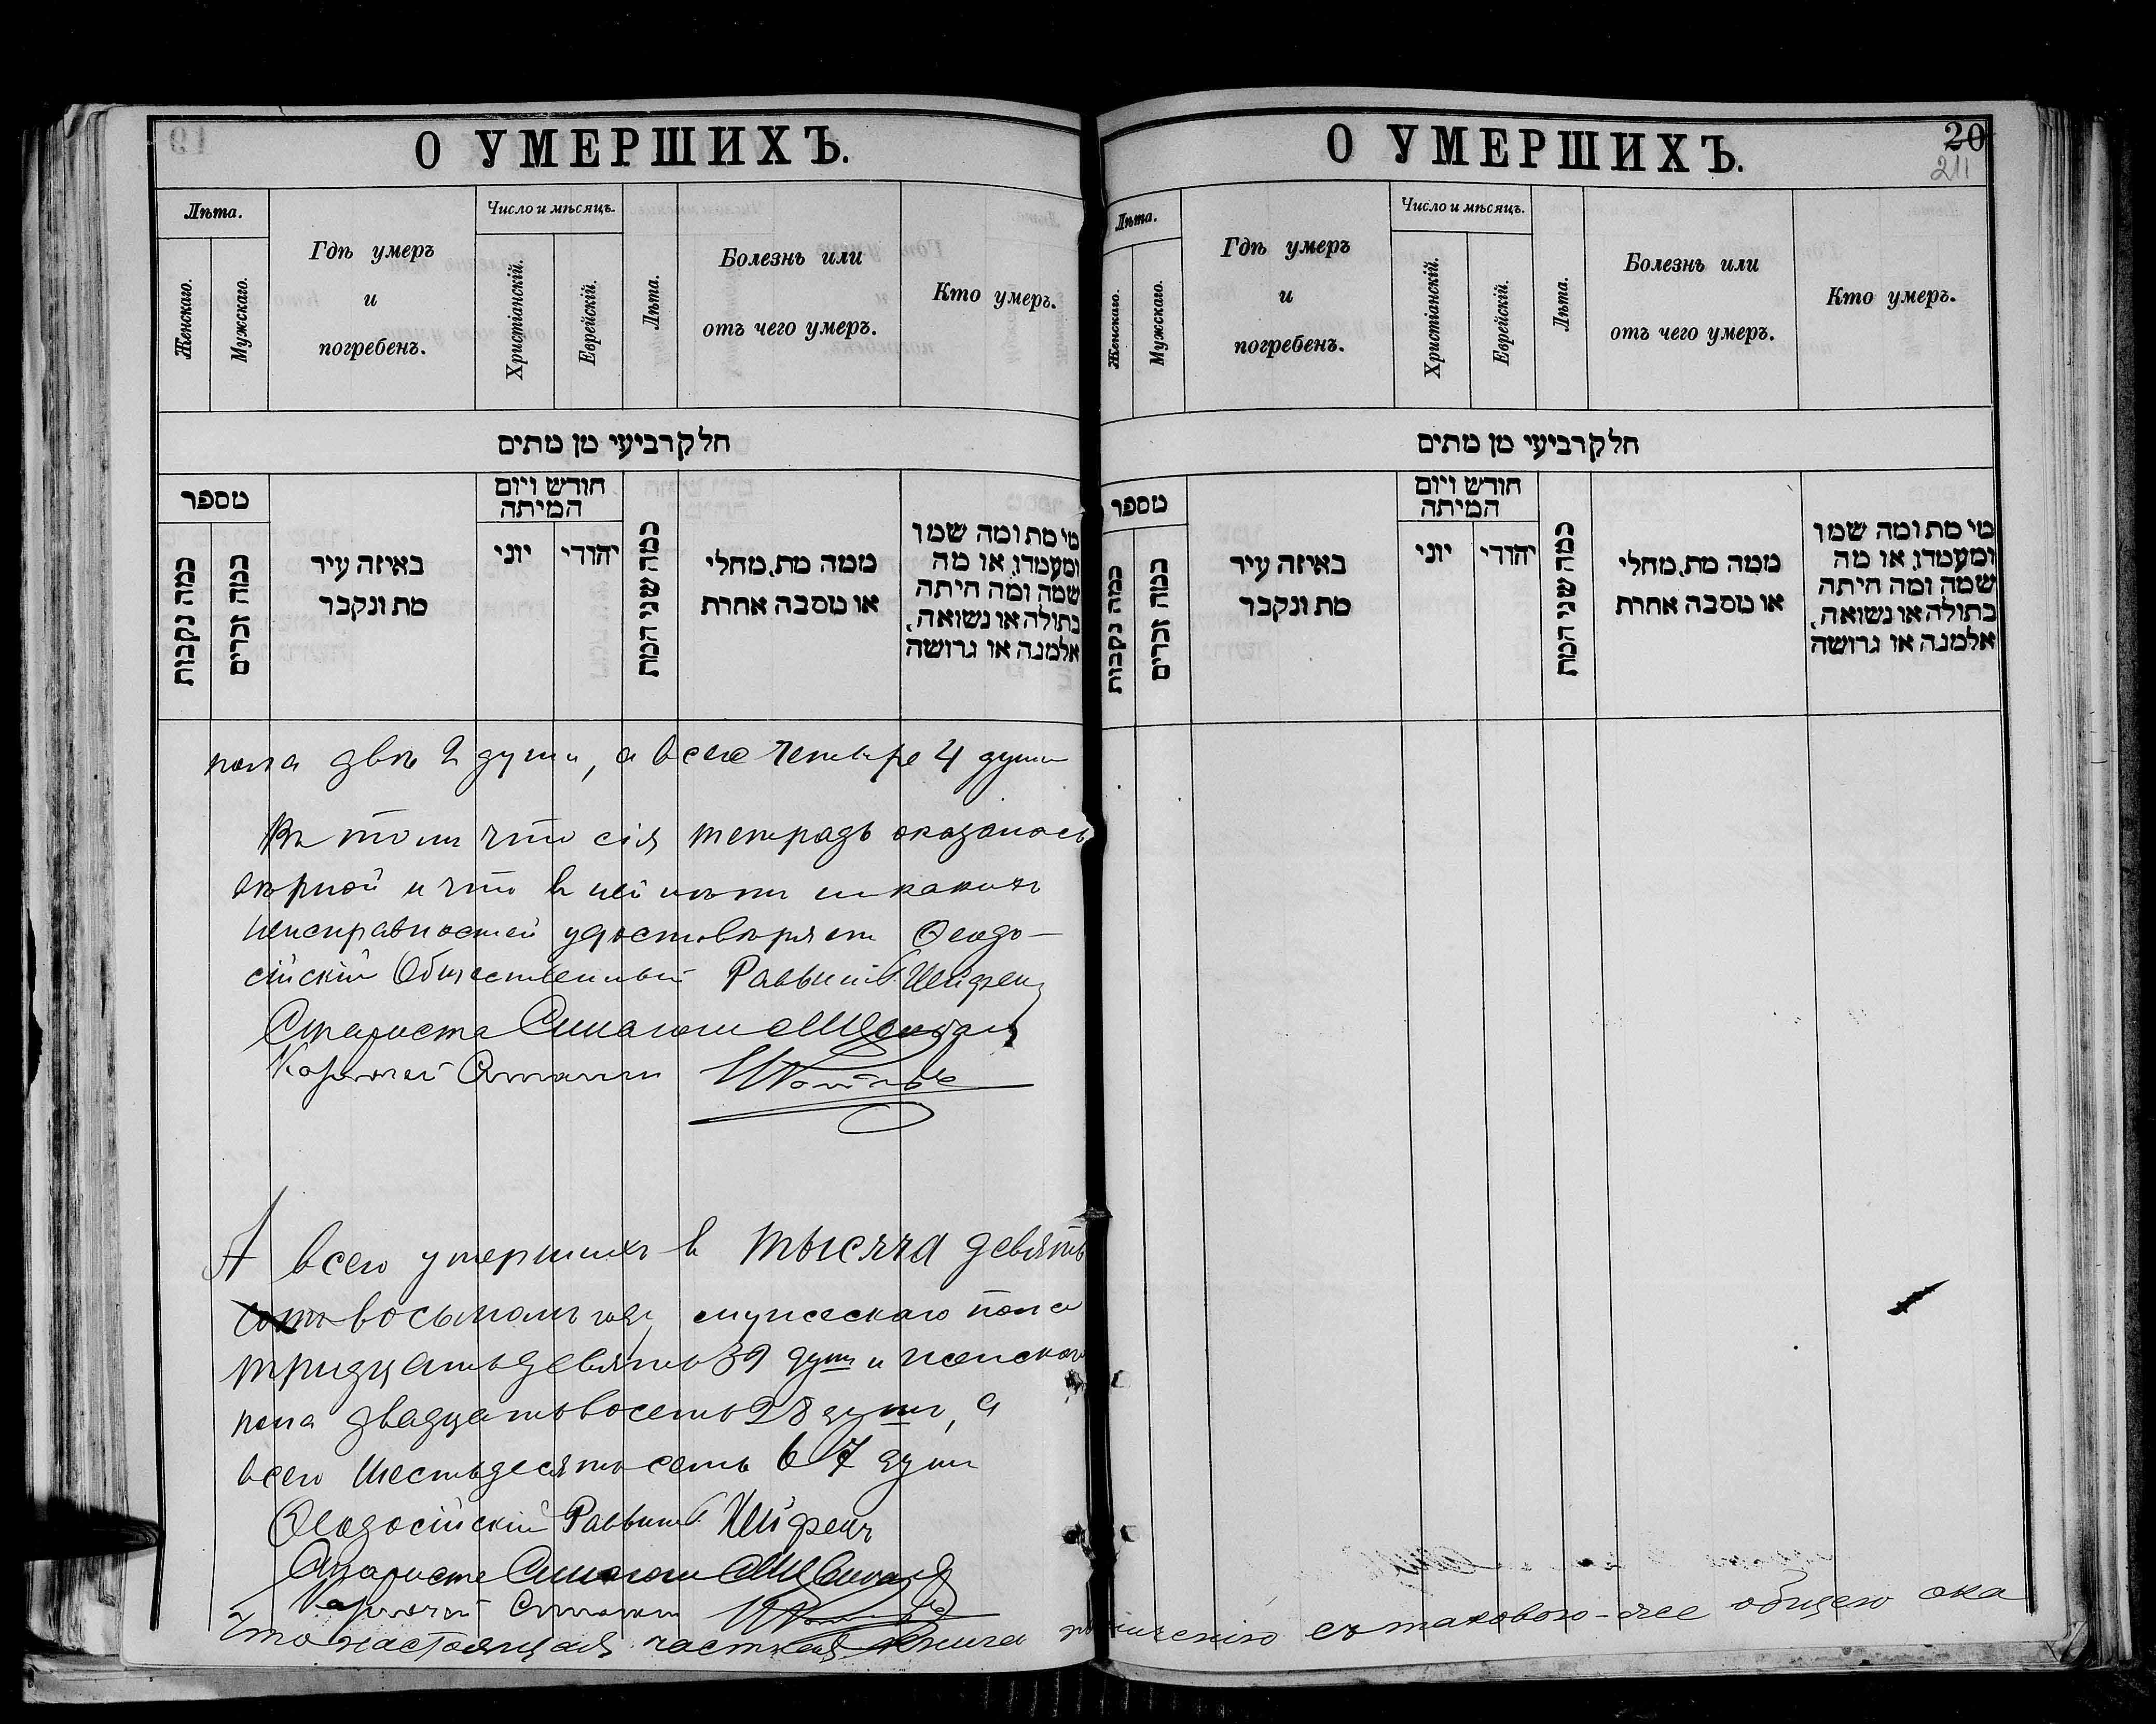 О УМЕРШИХЪ.
Лѣта.
Женскаго.
Мужскаго.
Гдѣ умеръ
и
погребенъ.
Число и мѣсяцъ.
Христіанскій.
Еврейскій.
Лѣта.
Болезнь или
отъ чего умеръ.
Кто умеръ.
חלק רביעי מן מתים
מספר
כמה נקבות
כמה זכרים
באיזה עיר
מת ונקבר
חודש ויום
המיתה
יוני
יהודי
כמה שני המת
ממה מת, מחלי
או מסבה אחרת
מי מת ומה שמו
ומעמדו, או מה
שמה ומה היתה
בתולה או נשואה,
אלמנה או גרושה
пола двѣ 2 души, а всего четыре 4 души
Въ томъ что сія тетрадь оказалась
вѣрной и что въ ней нѣтъ никакихъ
неисправностей удостовѣряетъ Ѳеодо-
сійскій Общественный Раввинъ
Староста Синагоги
А всего умершихъ въ тысяча девять
сотъ восьмомъ году мужескаго пола
тридцать девять 39 душъ и женскаго
пола двадцать восемь 28 душъ, а
всего шестьдесятъ семь 67 душъ
Ѳеодосійскій Раввинъ
Староста Синагоги
Что настоящая частная книга по сличенію съ таковою-же общею ока
О УМЕРШИХЪ.
20
211
Лѣта.
Женскаго.
Мужскаго.
Гдѣ умеръ
и
погребенъ.
Число и мѣсяцъ.
Христіанскій.
Еврейскій.
Лѣта.
Болезнь или
отъ чего умеръ.
Кто умеръ.
חלק רביעי מן מתים
מספר
כמה נקבות
כמה זכרים
באיזה עיר
מת ונקבר
חודש ויום
המיתה
יוני
יהודי
כמה שני המת
ממה מת, מחלי
או מסבה אחרת
מי מת ומה שמו
ומעמדו, או מה
שמה ומה היתה
בתולה או נשואה,
אלמנה או גרושה